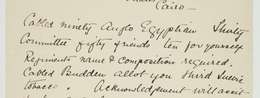 Cairo -
Cabled ninety Anglo Egyptian Thirty
Committee fifty friends ten for yourself
Regiments name & composition required.
Cabled Budden allot you third Suvic
tobacco. Acknowledgment will await